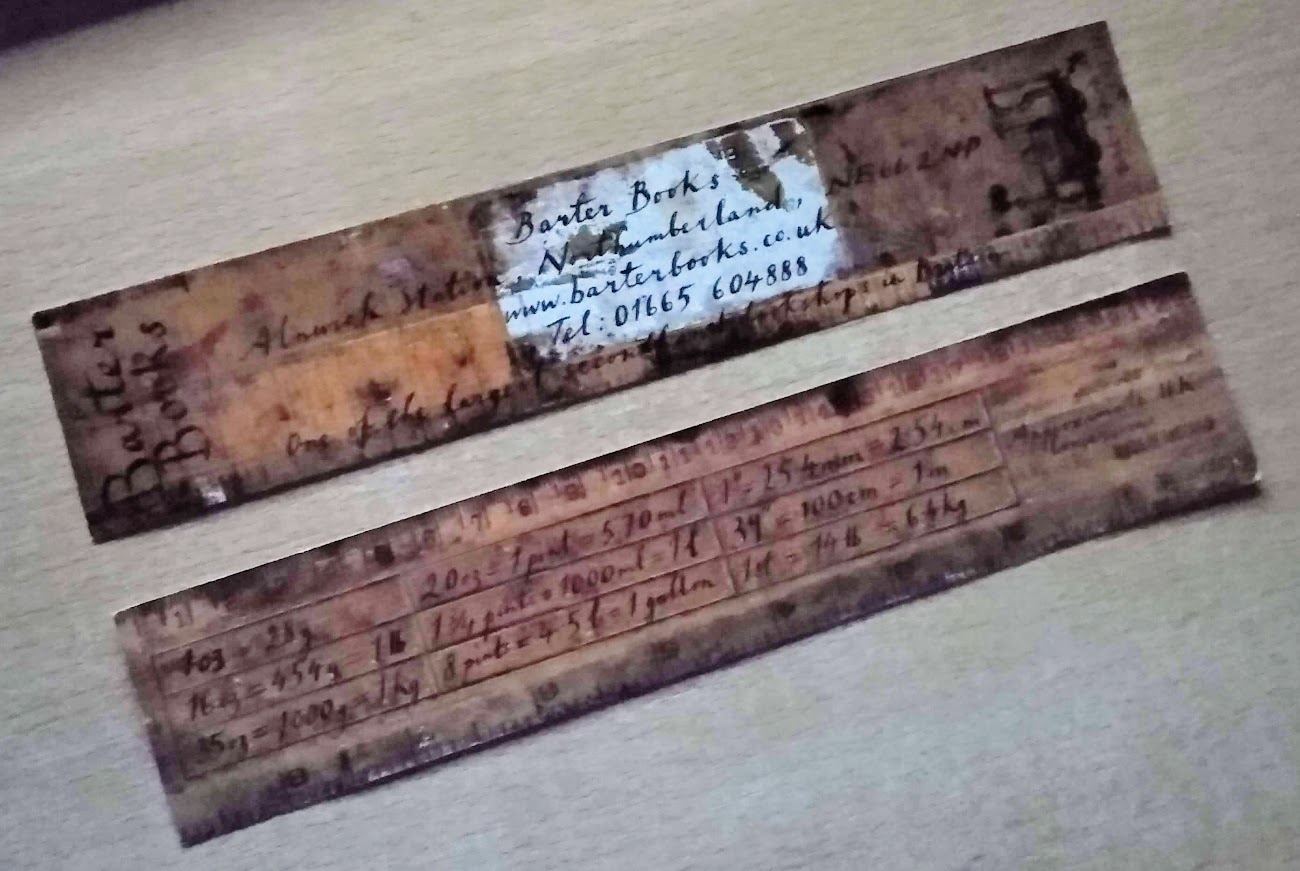 Barter
Books
Barter Books
Alnwick Station, Northumberland, NE66 2NP
www.barterbooks.co.uk
Tel: 01665 604888
One of the largest secondhand bookshops in Britain
1oz = 28g
16oz = 454g = 1lb
35oz = 1000g = 1kg
20oz = 1 pint = 570ml
1¾ pints = 1000ml = 1l
8 pints = 4.5l = 1 gallon
1" = 25.4mm = 2.54cm
39" = 100cm = 1m
1st = 14lb = 6.4kg
Approximate